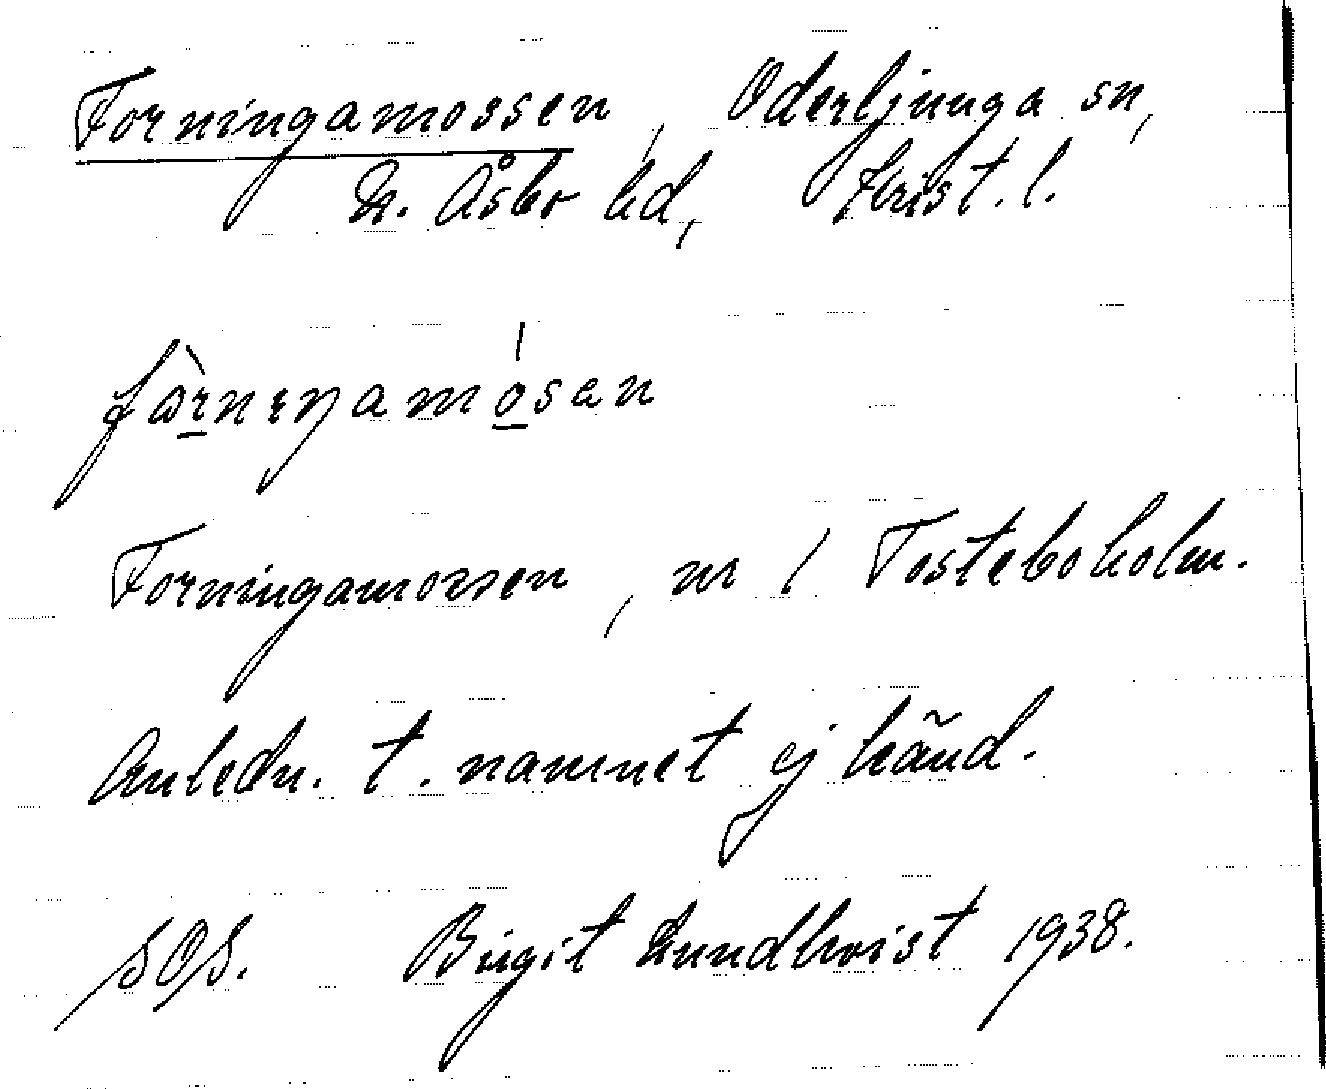 Forningamossen, Oderljunga sn,
N. Åsbo hd, Krist. l.
Forningamossen, nr 1 Tosteboholm.
Anledn. t. namnet ej känd.
SOS. Birgit Lundkvist 1938.